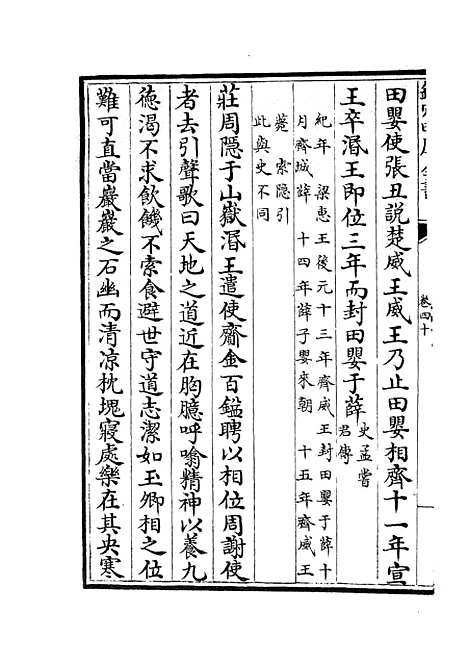 卷四十
田嬰使張丑說楚威王威王乃止田嬰相齊十一年宣
王卒湣王即位三年而封田嬰于薛史孟嘗
君傳
紀年梁惠王後元十三年齊威王封田嬰于薛十
月齊城薛十四年薛子嬰來朝十五年齊威王
薨索隱引
此與史不同
莊周隱于山嶽湣王遣使齎金百鎰聘以相位周謝使
者去引聲歌曰天地之道近在胸臆呼噏精神以養九
徳渴不求飲饑不索食避世守道志潔如玉卿相之位
難可直當巖巖之石幽而清涼枕塊寢處樂在其央寒